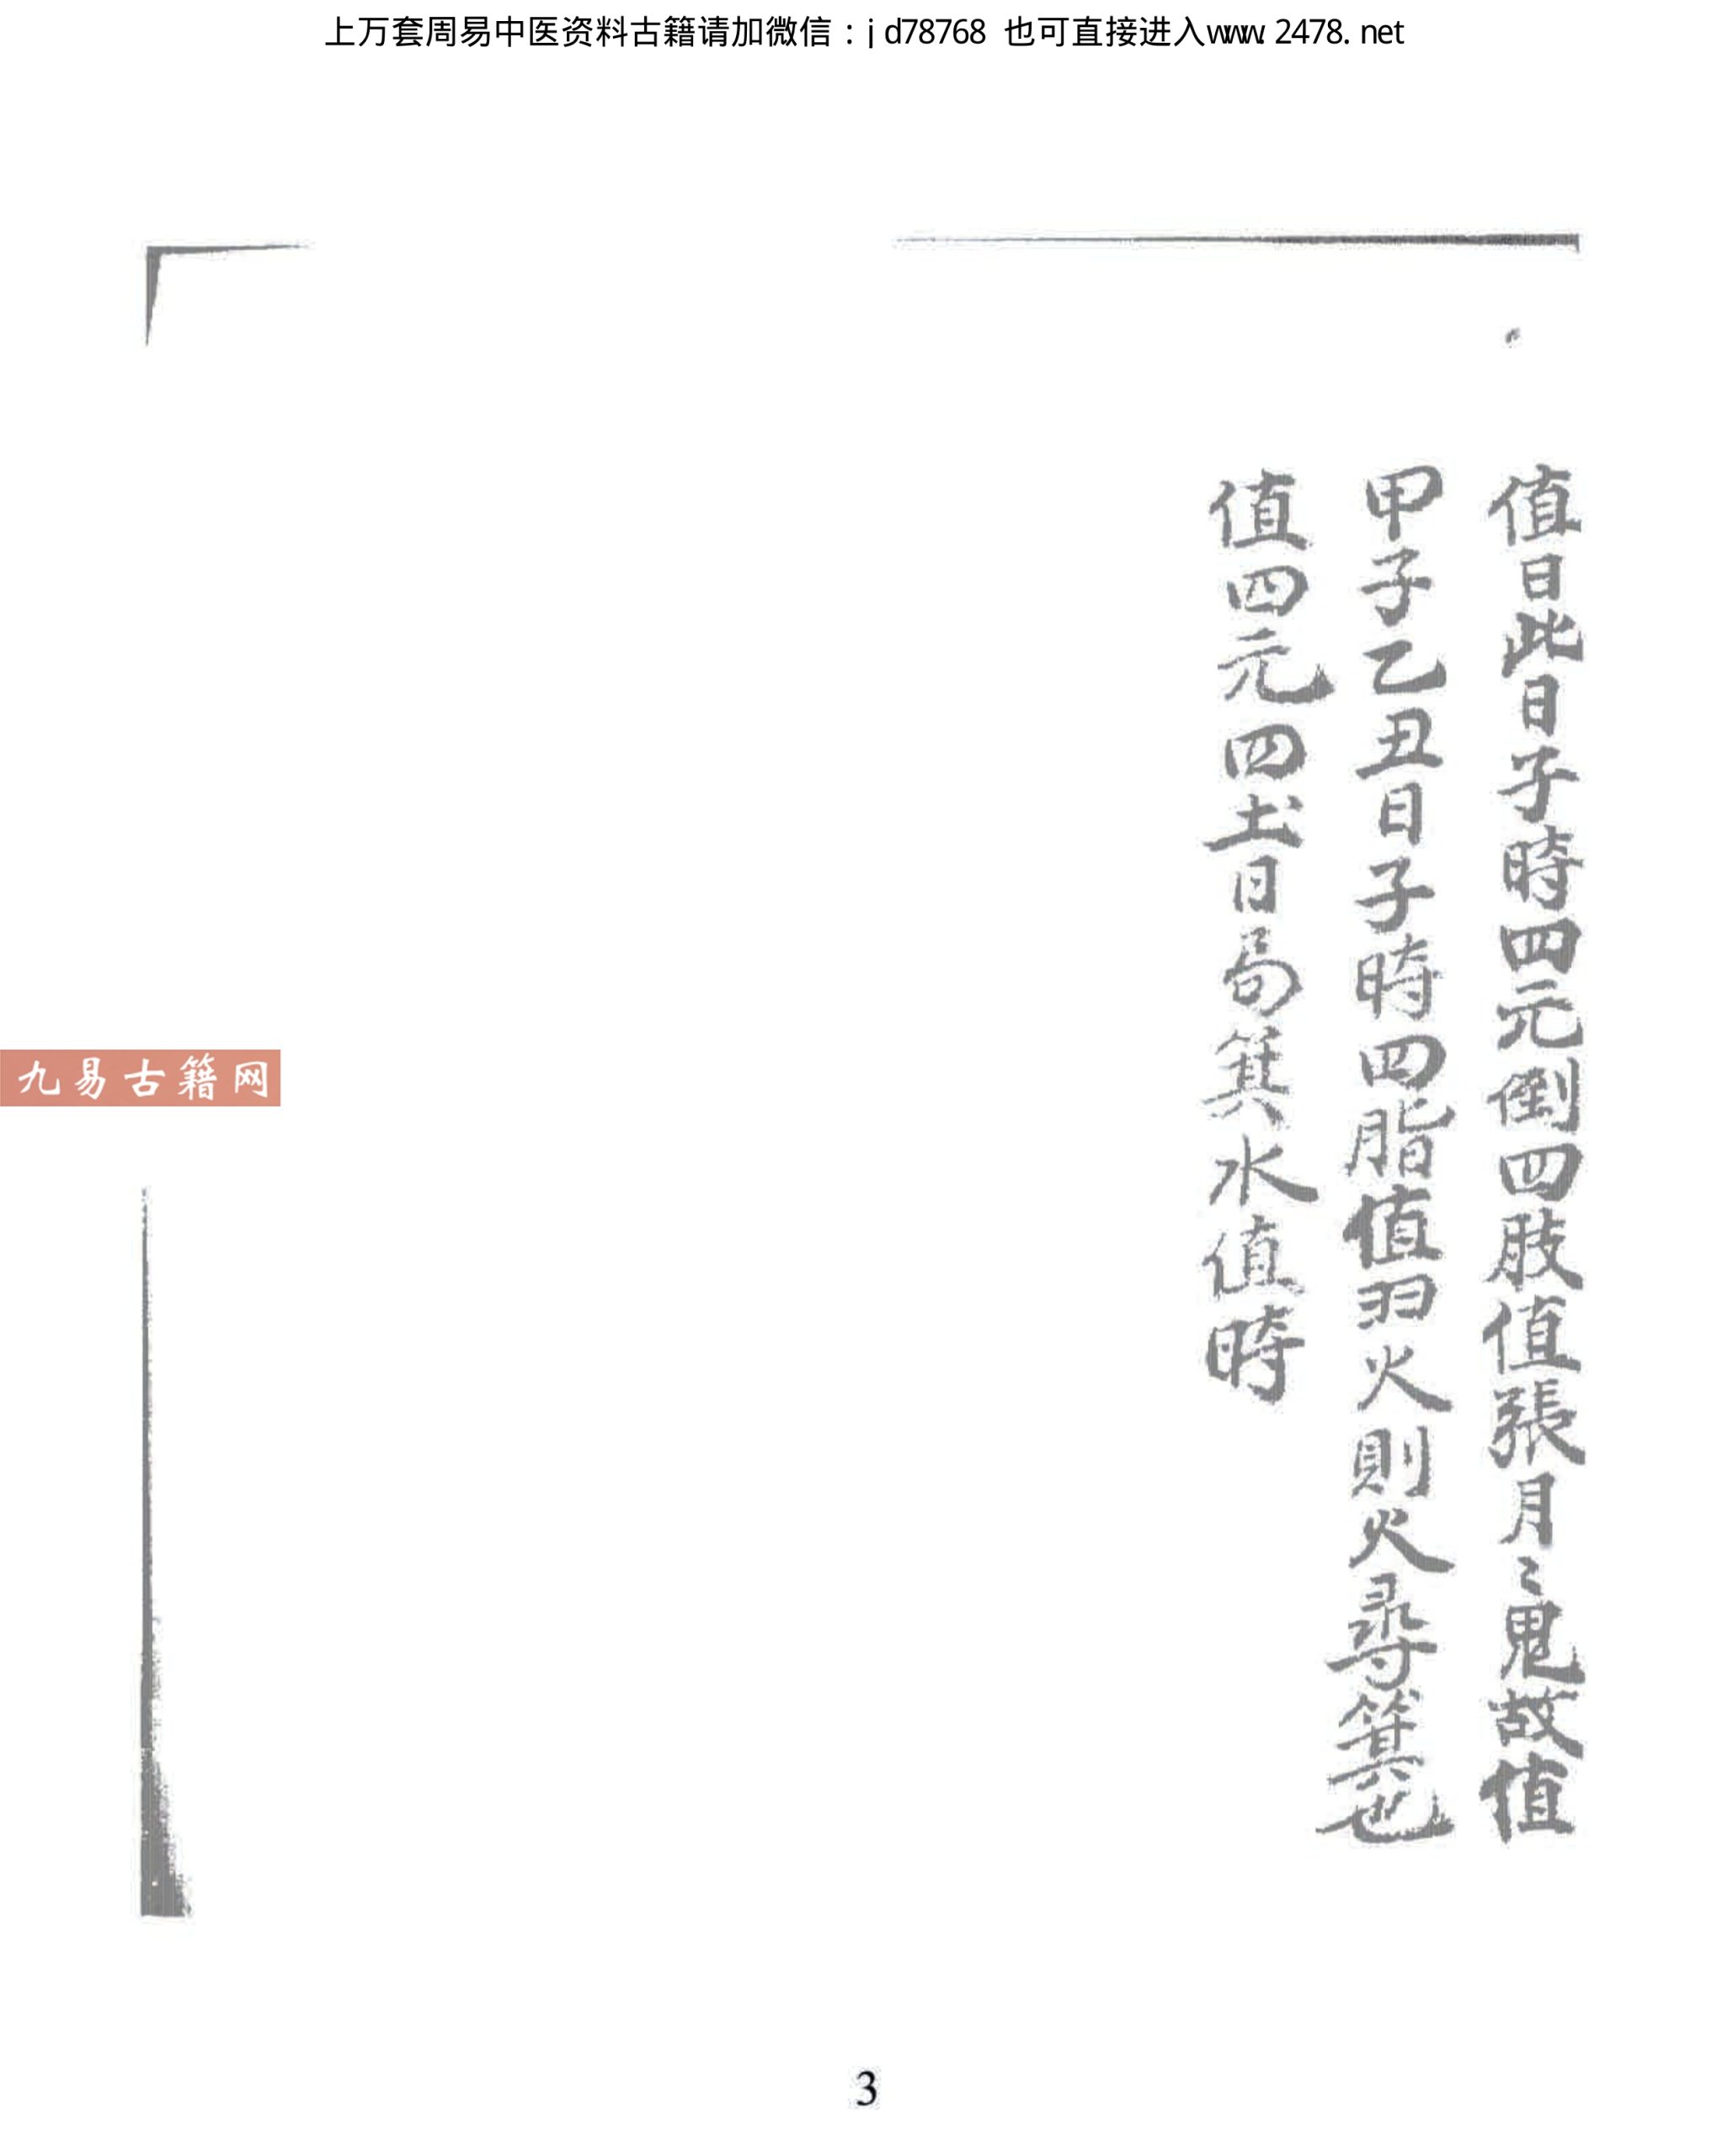 上万套周易中医资料古籍请加微信：jd78768 也可直接进入www.2478.net
值日此日子時四元倒四肢值張月〻鬼故值
甲子乙丑日子時四脂值羽火則火尋箕也
值四元四土日局箕水值時
九易古籍网
3